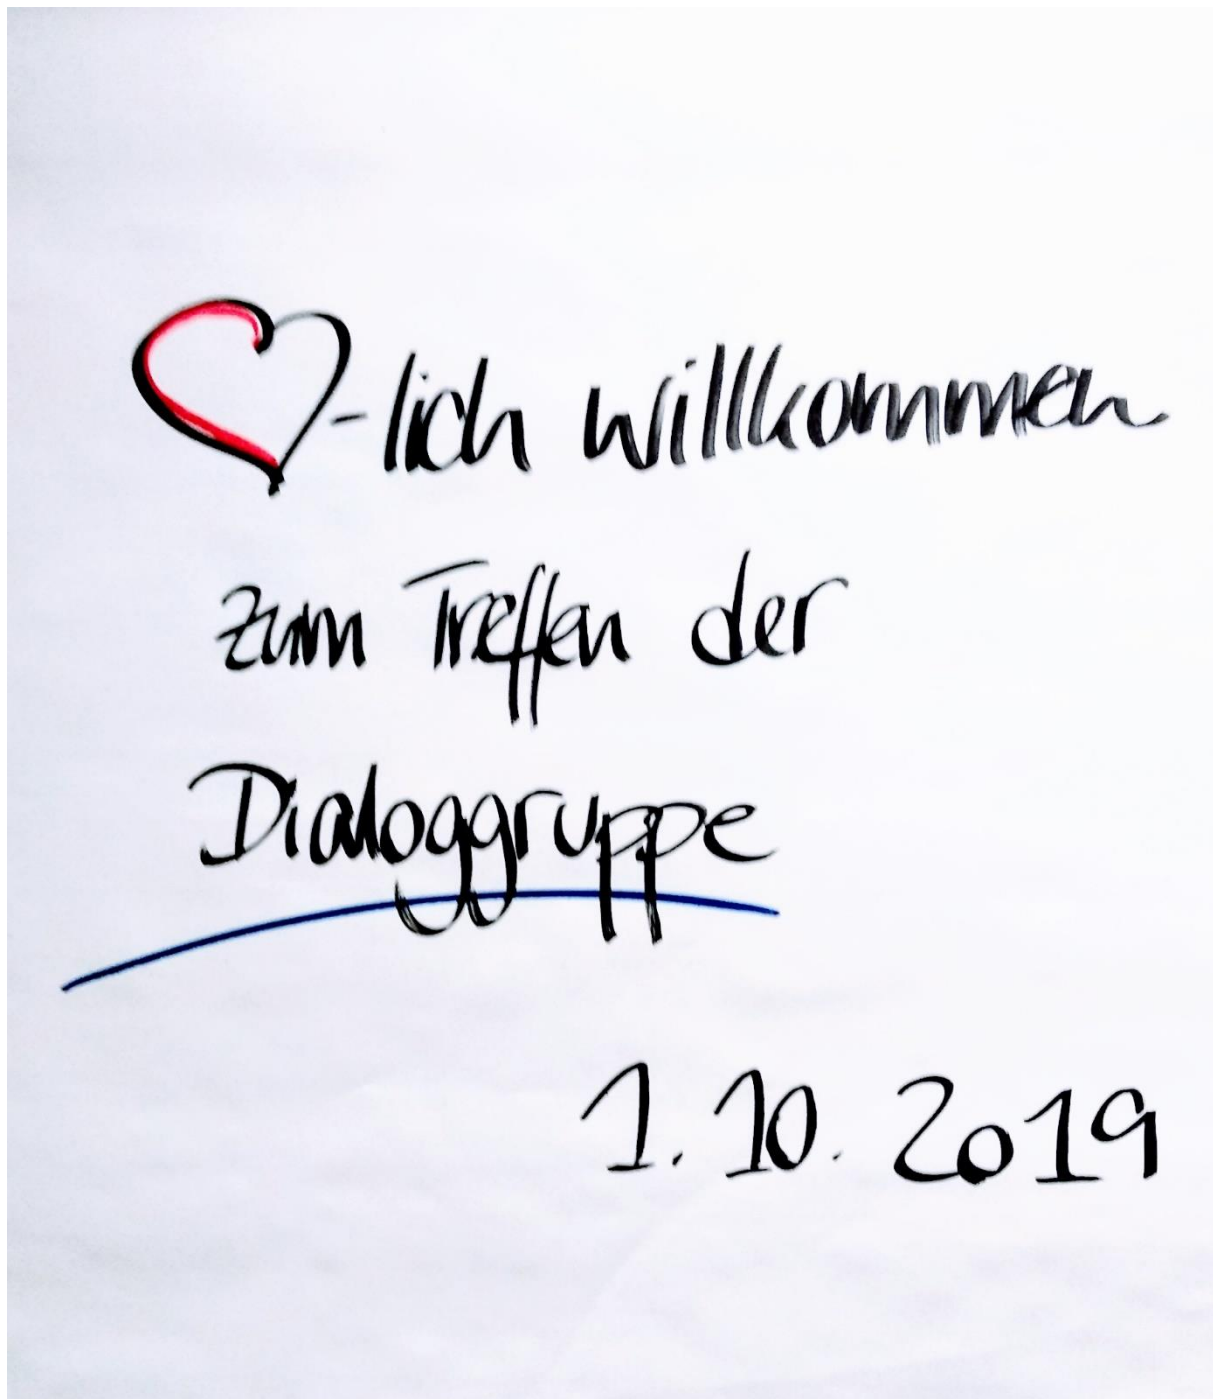 ♡-lich willkommen
zum Treffen der
Dialoggruppe
1.10.2019